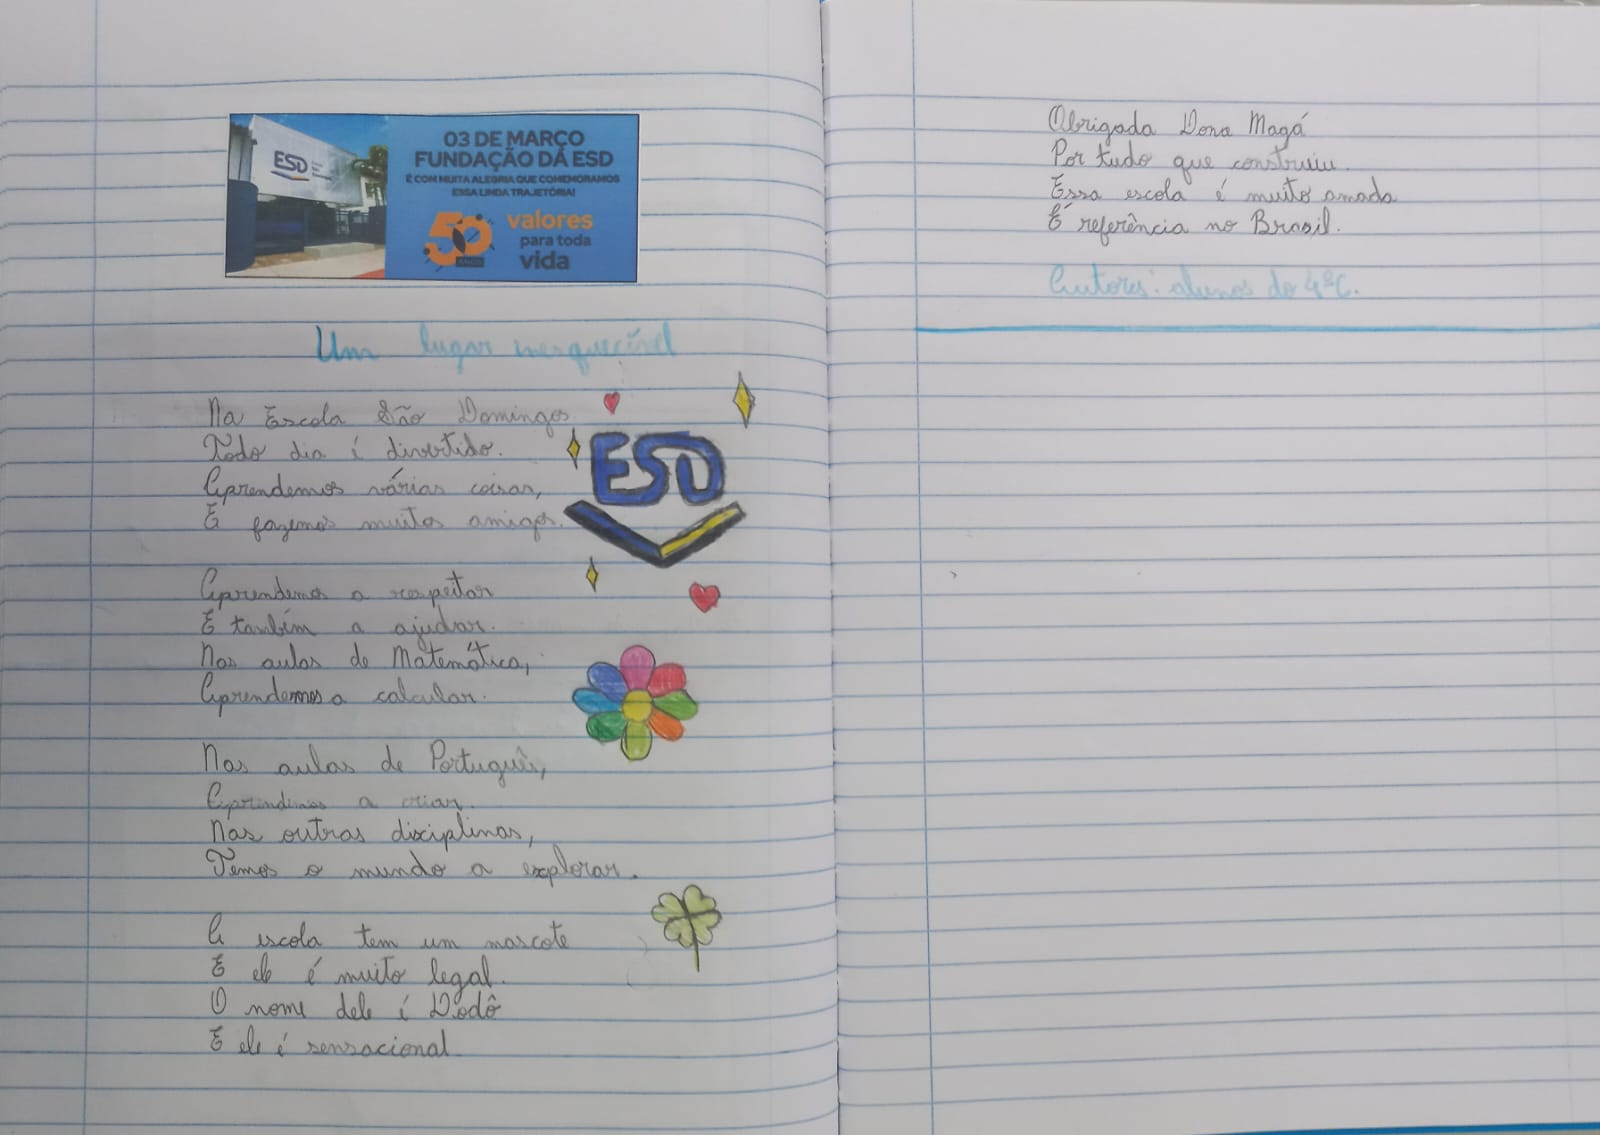 ESD
03 DE MARÇO
FUNDAÇÃO DA ESD
É COM MUITA ALEGRIA QUE COMEMORAMOS
ESSA LINDA TRAJETÓRIA!
50
ANOS
valores
para toda
vida
Um lugar inesquecível
Na Escola São Domingos
Todo dia é divertido.
Aprendemos várias coisas,
E fazemos muitos amigos.
ESD
Aprendemos a respeitar
E também a ajudar.
Nas aulas de Matemática,
Aprendemos a calcular.
Nas aulas de Português,
Aprendemos a criar.
Nas outras disciplinas,
Temos o mundo a explorar.
A escola tem um mascote
E ele é muito legal.
O nome dele é Dodô
E ele é sensacional.
Obrigada Dona Magá
Por tudo que construiu.
Essa escola é muito amada
É referência no Brasil.
Autores: alunos do 4ºC.